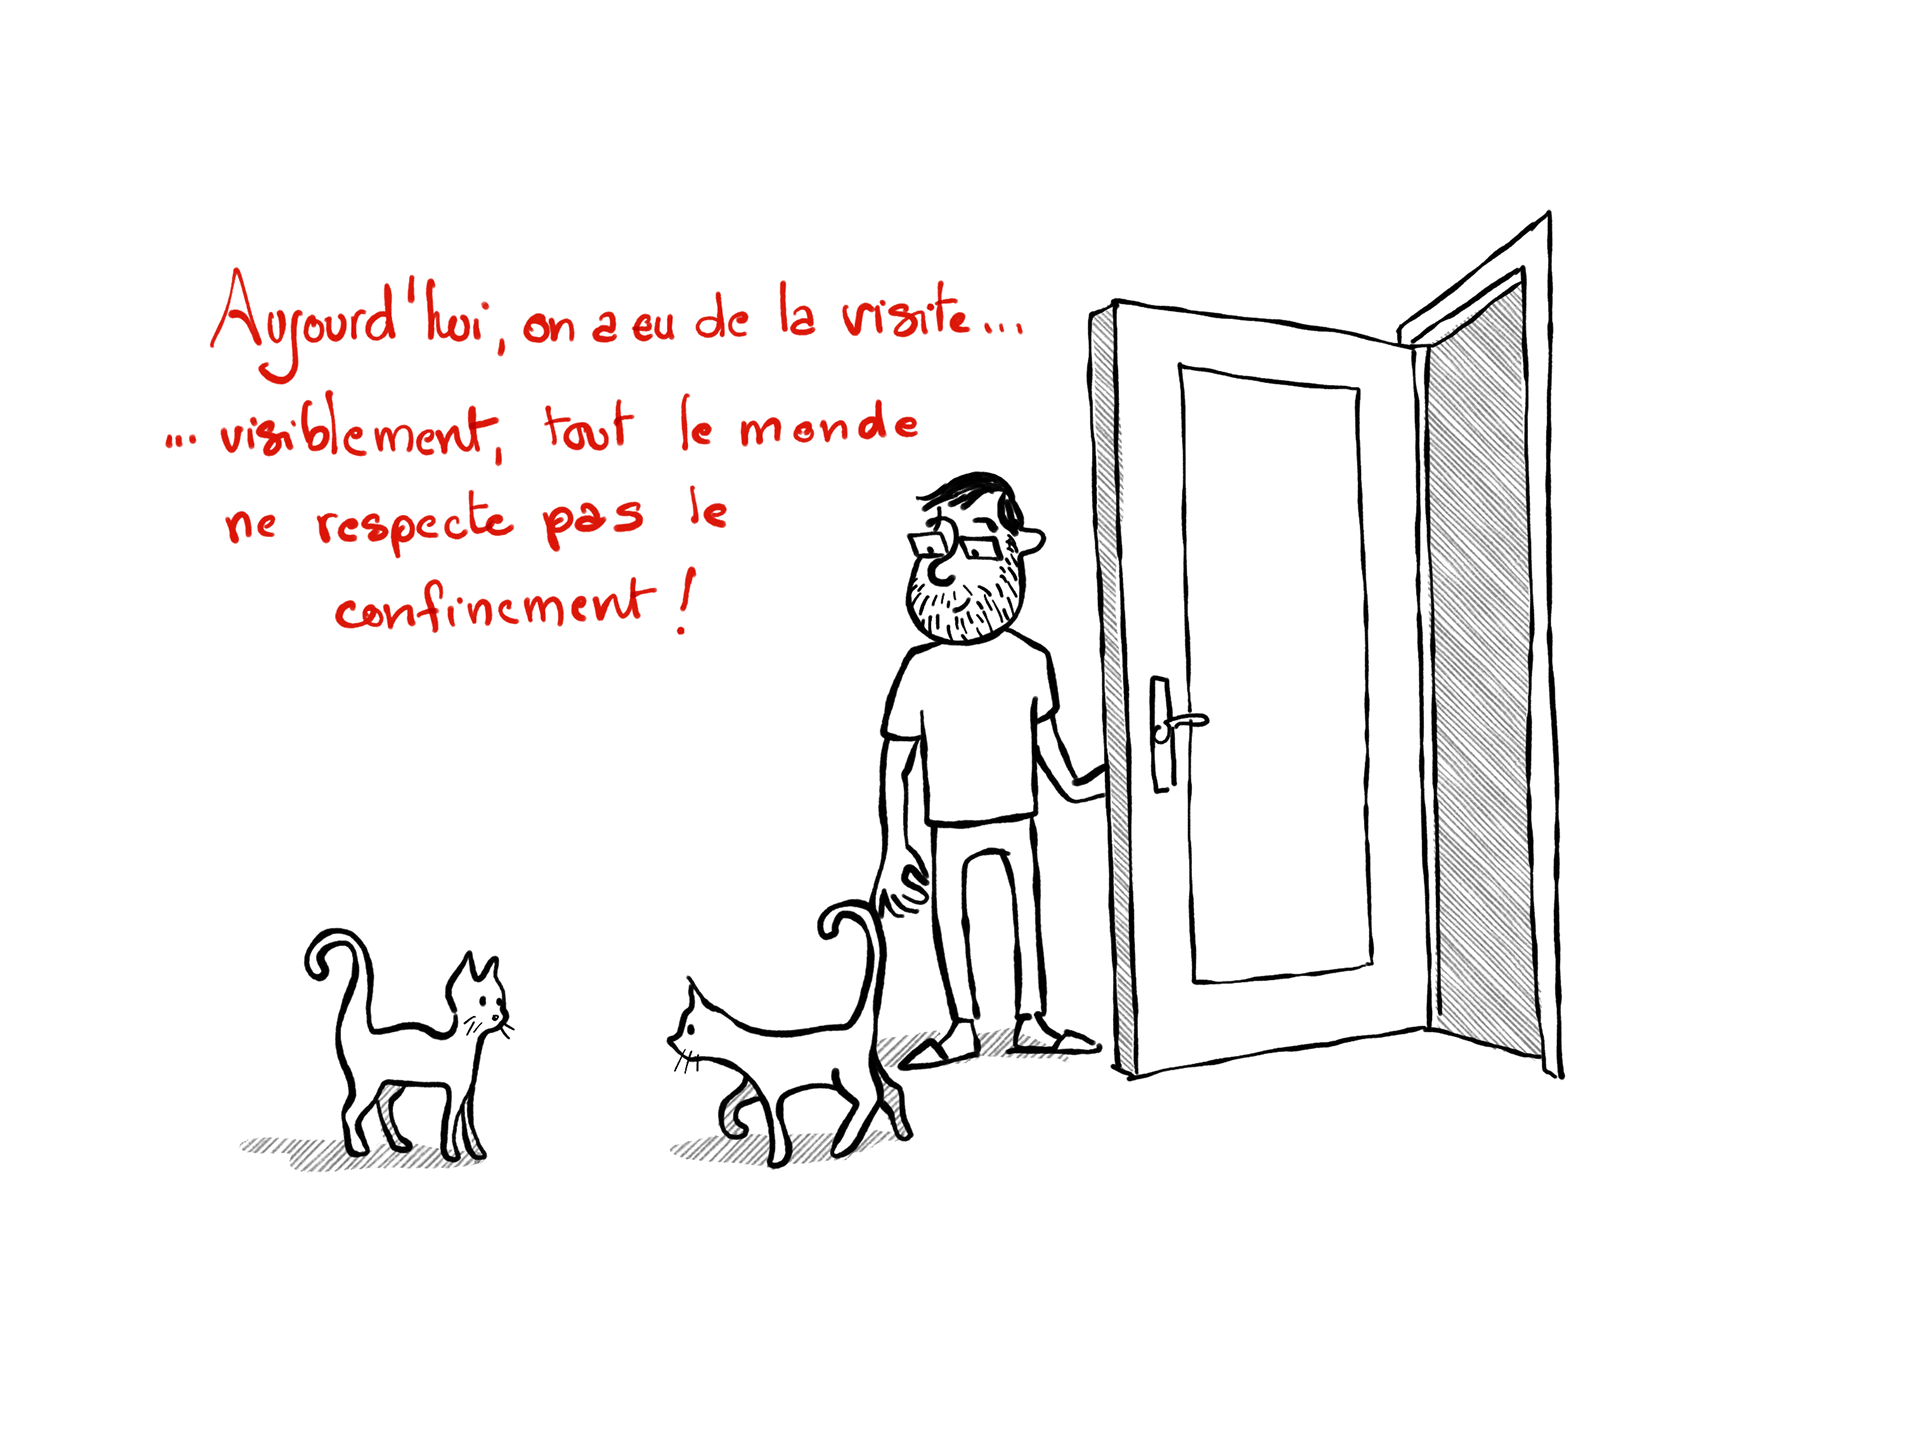 Aujourd'hui, on a eu de la visite...
... visiblement, tout le monde
ne respecte pas le
confinement !